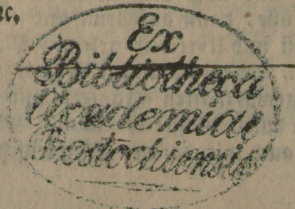 ac.
Ex
Bibliotheca
Academiae
Rostochiensis